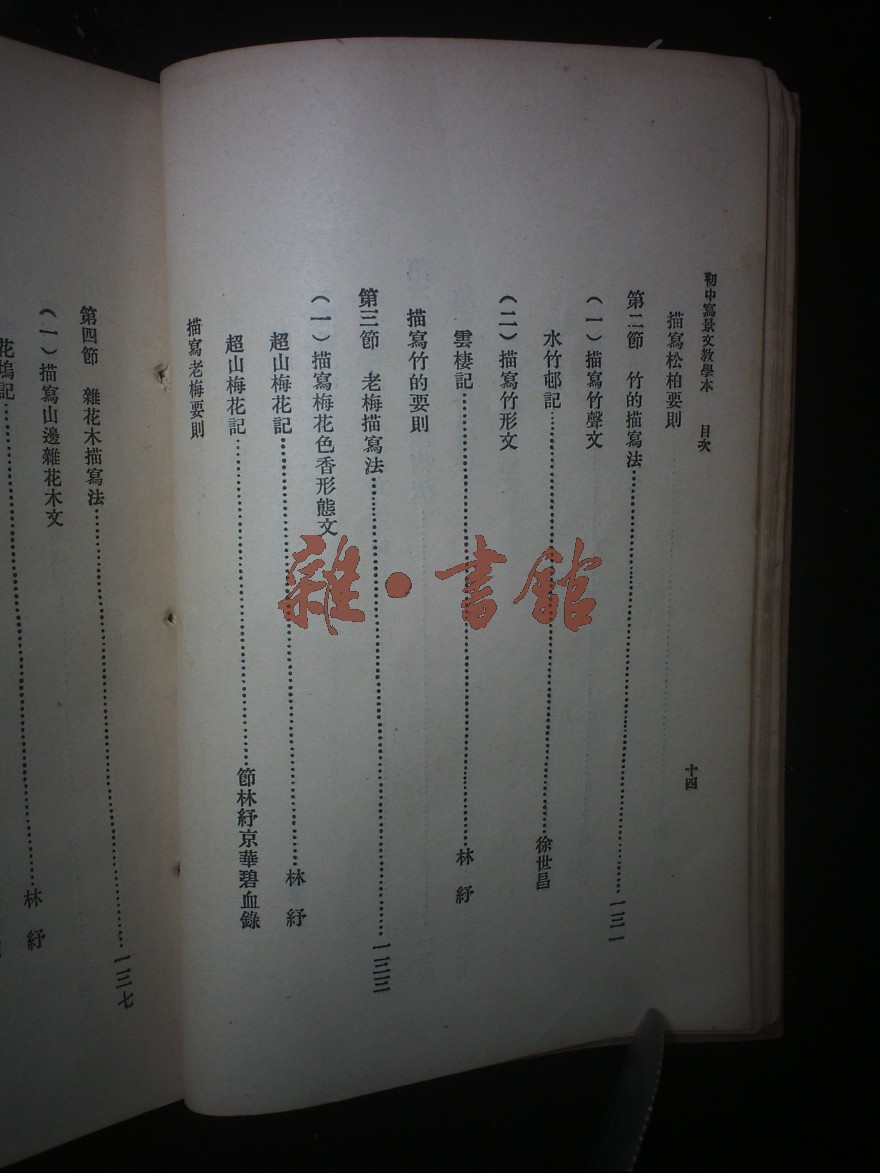 初中寫景文教學本　目次
十四
描寫松柏要則
第二節　竹的描寫法…………一三一
（一）描寫竹聲文
水竹邨記…………徐世昌
（二）描寫竹形文
雲棲記…………林紓
描寫竹的要則
第三節　老梅描寫法…………一三三
（一）描寫梅花色香形態文
超山梅花記…………林紓
超山梅花記…………節林紓京華碧血錄
描寫老梅要則
第四節　雜花木描寫法…………一三七
（一）描寫山邊雜花木文
花塢記…………林紓
雜・書館